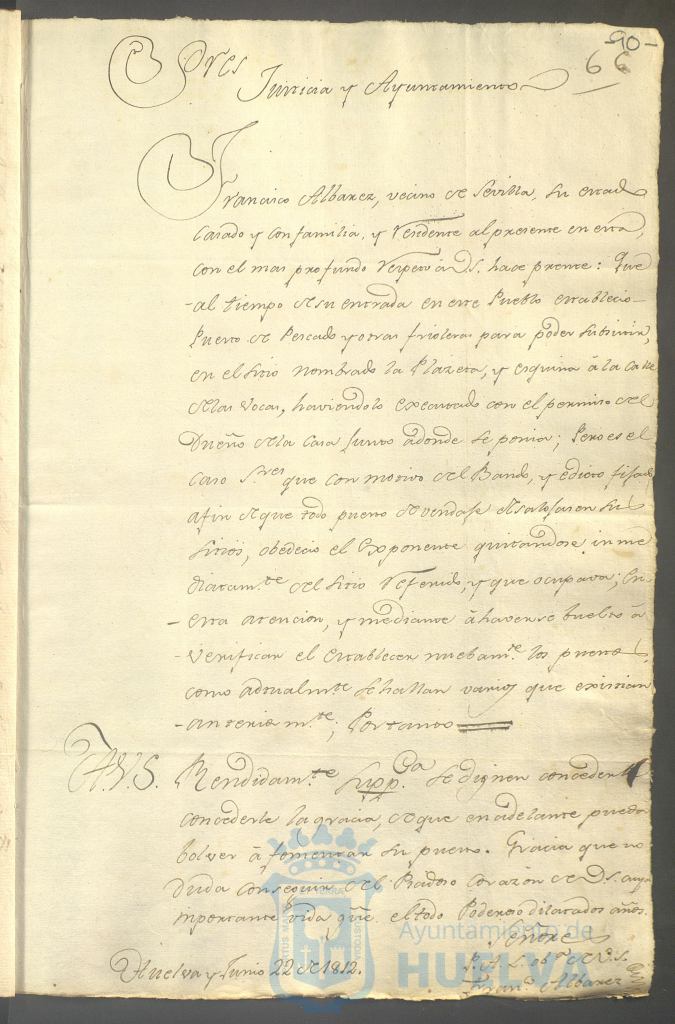 -90-
66
Sres
Justicia y Ayuntamiento
Francisco Albarez, vecino de Sevilla, su estado
Casado y con familia, y Residente al presente en esta,
con el mas profundo Respeto à V.S. hace presente: Que
al tiempo de su entrada en este Pueblo establecio
Puesto de Pescado y otras frioleras para poder subsistir,
en el sitio nombrado la Plazeta, y esquina à la calle
de las Vocas, haviendolo executado con el permiso del
Dueño de la Casa junto adonde se ponia; Pero es el
caso S.res que con motivo del Bando, y edicto fijado
afin de que todo puesto de venda se desalojasen sus
sitios, obedecio el Exponente quitandose inme
diatam.te del sitio Referido, y que ocupava; En
esta atencion, y mediante à haverse buelto à
verificar el establecer nuebam.te los puestos,
como actualm.te se hallan varios que existian
anteriorm.te; Portanto
A.V.S. Rendidam.te Supp.ca se dignen concederle
concederle la gracia, de que en adelante pueda
bolver à fomentar su puesto. Gracia que no
duda conseguir del Piadoso Corazon de V.S. cuya
importante vida gũe. el todo Poderoso dilatados años.
Huelva y Junio 22 de 1812.
Señores
P. A. L. ob.te de V.S.
Fran.co Albarez
Ayuntamiento de
HUELVA